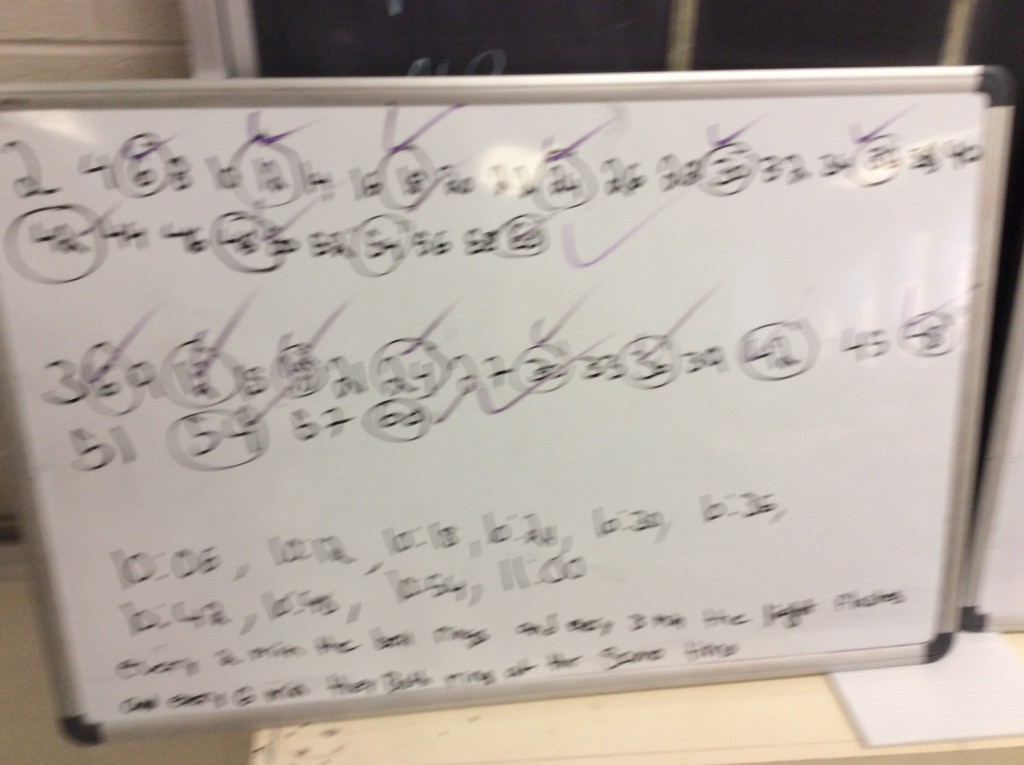 2 4 6 8 10 12 14 16 18 20 22 24 26 28 30 32 34 36 38 40
42 44 46 48 50 52 54 56 58 60
3 6 9 12 15 18 21 24 27 30 33 36 39 42 45 48
51 54 57 60
10:06, 10:12, 10:18, 10:24, 10:30, 10:36,
10:42, 10:48, 10:54, 11:00
every 2 min the bell rings and every 3 min the light flashes
and every 6 min they Both ring at the same time